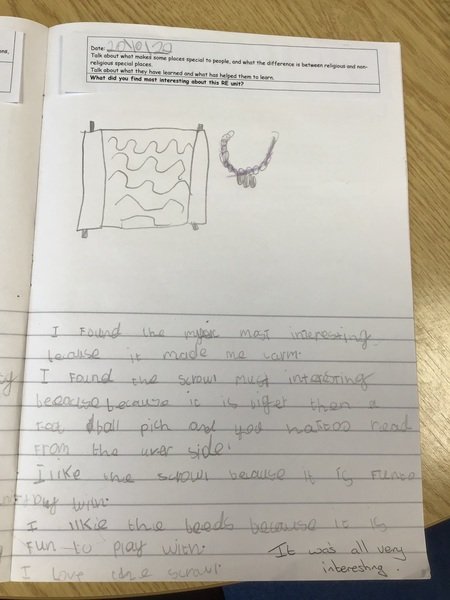 ons,
Date: 20/01/20
Talk about what makes some places special to people, and what the difference is between religious and non-
religious special places.
Talk about what they have learned and what has helped them to learn.
What did you find most interesting about this RE unit?
I Found the most interesting
because it made me carm.
I Found the scrowl must interesting
because it is biger then a
ball pich and you read
From the uver side.
I like the scrowl because it is Funto
play with.
I likie the beeds because it is
Fun to play with.
It was all very
interesting.
I love the scrowl.